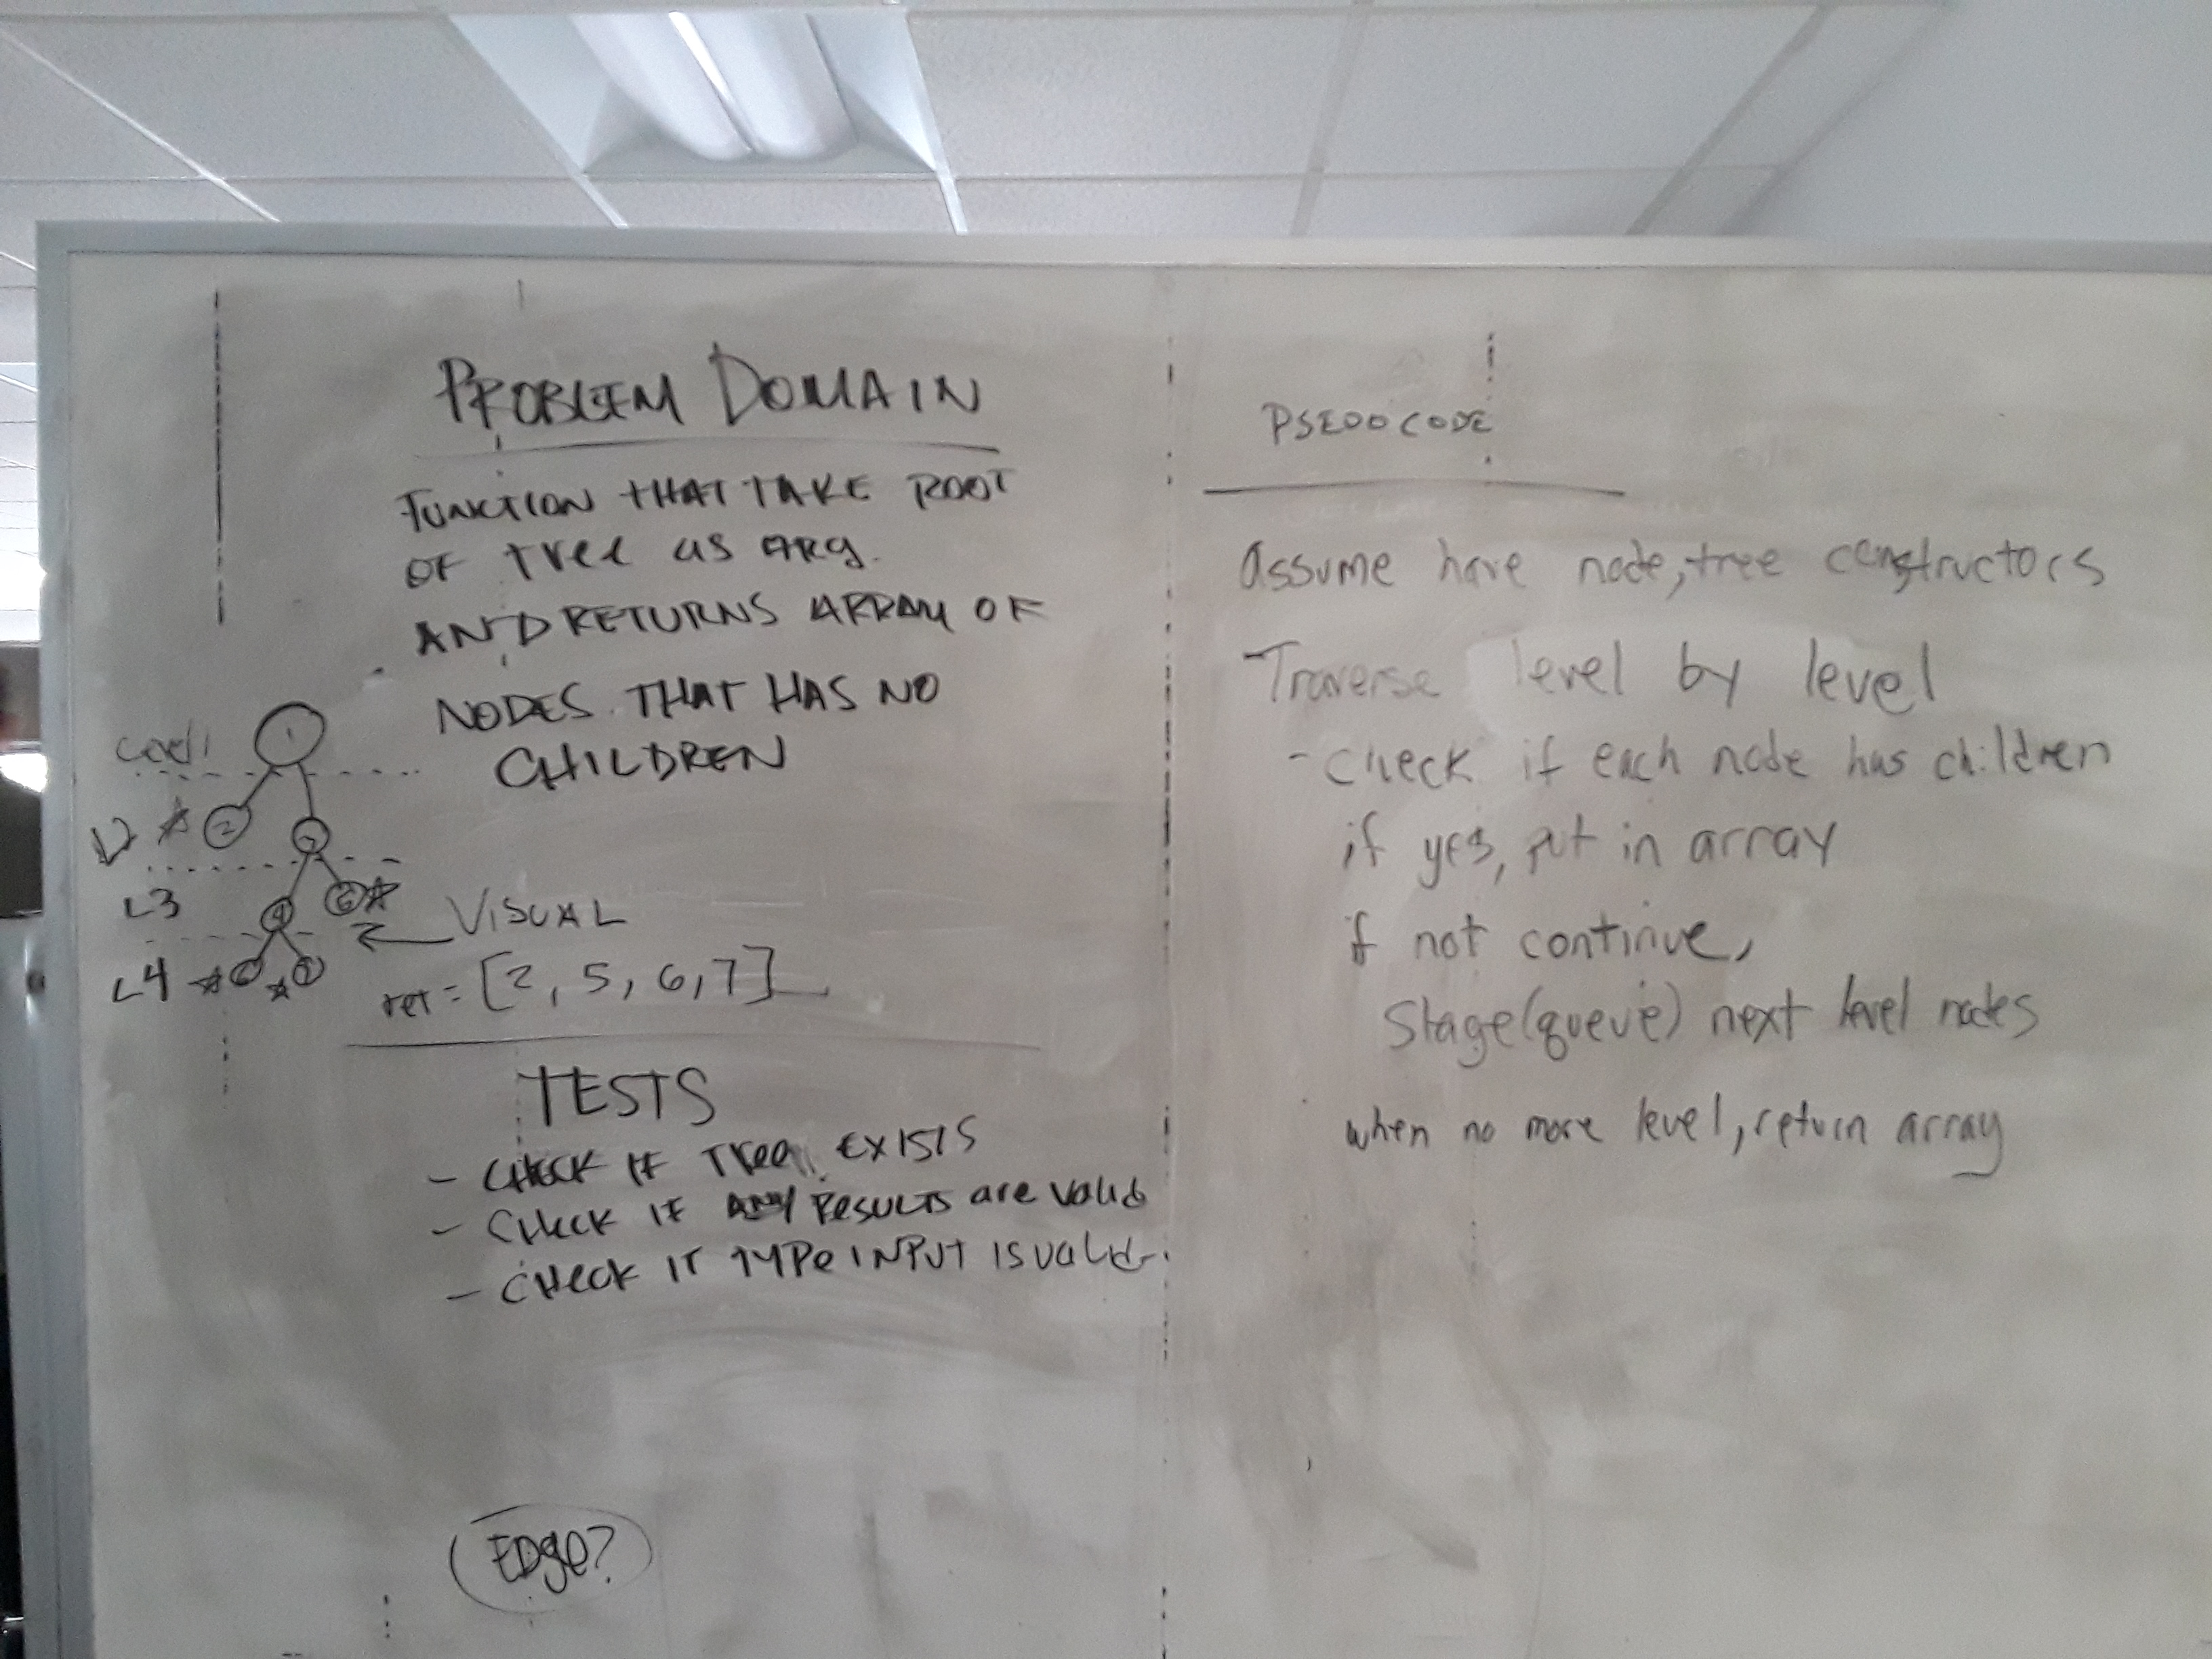 PROBLEM DOMAIN
FUNCTION THAT TAKE ROOT
OF Tree as ARg.
AND RETURNS ARRAY OF
NODES THAT HAS NO
CHILDREN
Level 1
1
L2
2
3
L3
4
6
L4
7
VISUAL
ret = [2, 5, 6, 7]
TESTS
- CHECK IF Tree EXISTS
- CHeck IF ANY Results are valid
- CHeck IF TYPe INPUT IS valid.
EDge?
PSEDOCODE
Assume have node, tree constructors
Traverse level by level
- Check if each node has children
if yes, put in array
if not continue,
Stage(queue) next level nodes
when no more level, return array